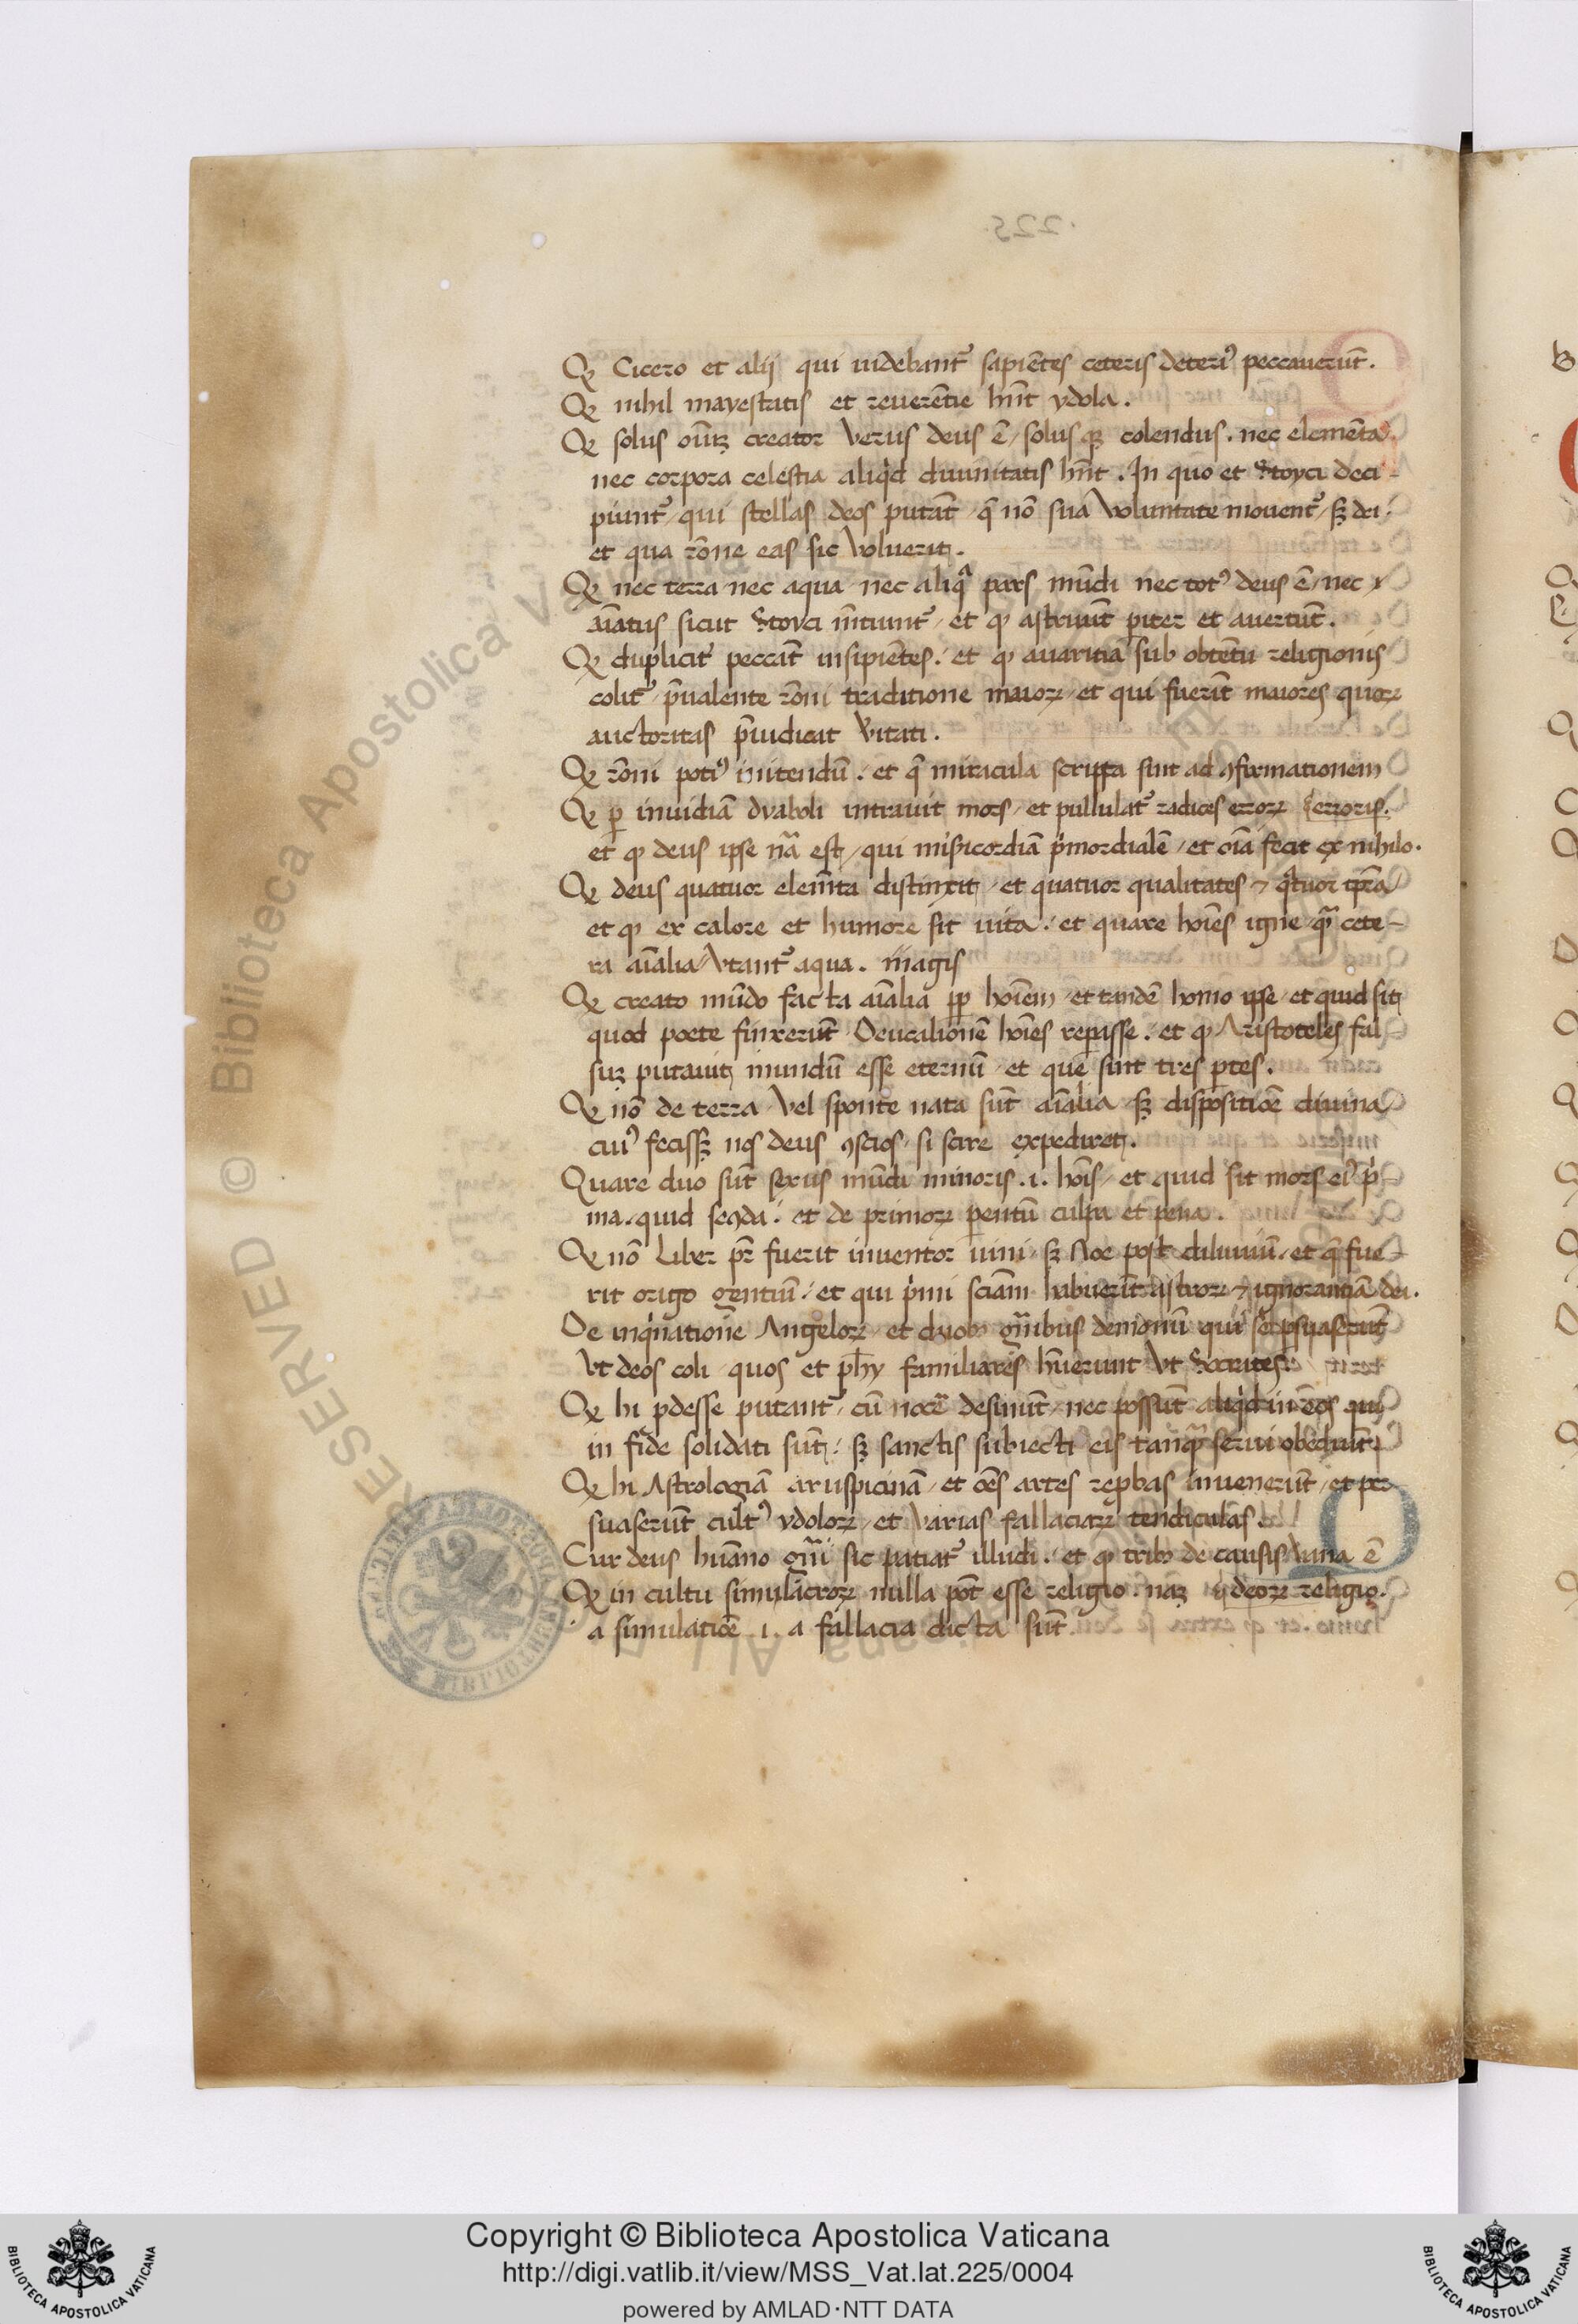 Qꝫ Cicero et alij qui uidebantᷣ sapiẽtes ceteris deteriꝰ peccauerũt.
Qꝫ nihil mayestatis et reuerẽtie hñt ydola.
Qꝫ solus oĩuꝫ creator verus deus ẽ / solusqꝫ colendus. nec elemẽta
nec corpora celestia aliqͥd diuinitatis hñt. In quo et Stoyci deci-
piuntᷣ / qui stellas deos putãt / q̃ nõ suã voluntate mouentᷣ / sꝫ dei.
et qua rõne eas sic voluerit.
Qꝫ nec terra nec aqua nec aliqᷓ pars mũdi nec totꝰ deus ẽ / nec
aĩatus sicut Stoyci m̃tiuntᷣ / et ꝙ astruũt ꝑiter et auertũt.
Qꝫ duplicitᷣ peccãt insipiẽtes. et ꝙ auaritiã sub obtẽtu religionis
colitᷣ / p̃ualente rõni traditione maioꝝ / et qui fuerĩt maiores quoꝝ
auctoritas p̃iudicat v̾itati.
Qꝫ rõni potiꝰ initendũ. et q̃ miracula scripta sint ad ꝯfirmationem
Qꝫ ꝑ inuidiã dyaboli intrauit mors / et pullulatᷣ radices erroꝝ erroris.
et ꝙ deus ipse nr̃a est / qui misꝑicordiã pͥmordialẽ / et oĩa fecit ex nihilo.
Qꝫ deus quatuor elem̃ta distinxit / et quatuor qualitates ⁊ qᷓtuor tp̃ra
et ꝙ ex calore et humore sit uita. et quare hoĩes igne qᷓ cete-
ra aĩalia / vtantᷣ aqua. magis
Qꝫ creato mũdo facta aĩalia ꝓp hoĩem / et tandẽ homo ipse / et quid sit
quod poete finxerũt Deucalionẽ hoĩes reꝑasse. et ꝙ Aristoteles fal
suꝫ putauit mundũ esse eternũ / et que sint tres ꝑtes.
Qꝫ nõ de terra vel sponte nata sũt aĩalia sꝫ dispositiõe diuina
cuiꝰ fecissꝫ nos deus ꝯscios / si scire expediret.
Quare duo sũt sexus mũdi minoris .i. hoĩs / et quid sit mors eiꝰ pͥ-
ma. quid secũda. et de primoꝝ parentũ culpa et pena.
Qꝫ nõ Liber pr̃ fuerit inuentor uini / sꝫ Noe post diluuiũ. et q̃ fue-
rit origo gentiũ. et qui pͥmi sciam̃ habuerũt astroꝝ ⁊ ignorantiã dei.
De inqͥnatione Angeloꝝ / et duobꝰ gñibus demonũ qui sẽ ꝑsuaserũt
vt deos coli quos et ph̃y familiares hũerunt vt Socrates.
Qꝫ hi ꝓdesse putantᷣ / cũ nocẽ desinũt / nec possũt aliqͥd in eos qui
in fide solidati sũt. sꝫ sanctis subiecti eis tanqᷓ serui obediũt.
Qꝫ hi Astrologiã aruspicinã / et oẽs artes reꝓbas inuenerũt / et per
suaserũt cultꝰ ydoloꝝ / et varias fallaciaꝝ tendiculas.
Cur deus huãno gñi sic patiatᷣ illudi. et ꝙ tribꝰ de causis vana ẽ
Qꝫ in cultu simulacroꝝ nulla põt esse religio. naꝫ deoꝝ religio.
a simulatiõe .i. a fallacia dicta sũt
.225.
Copyright © Biblioteca Apostolica Vaticana
http://digi.vatlib.it/view/MSS_Vat.lat.225/0004
powered by AMLAD·NTT DATA
BIBLIOTECA APOSTOLICA VATICANA
BIBLIOTECA APOSTOLICA VATICANA